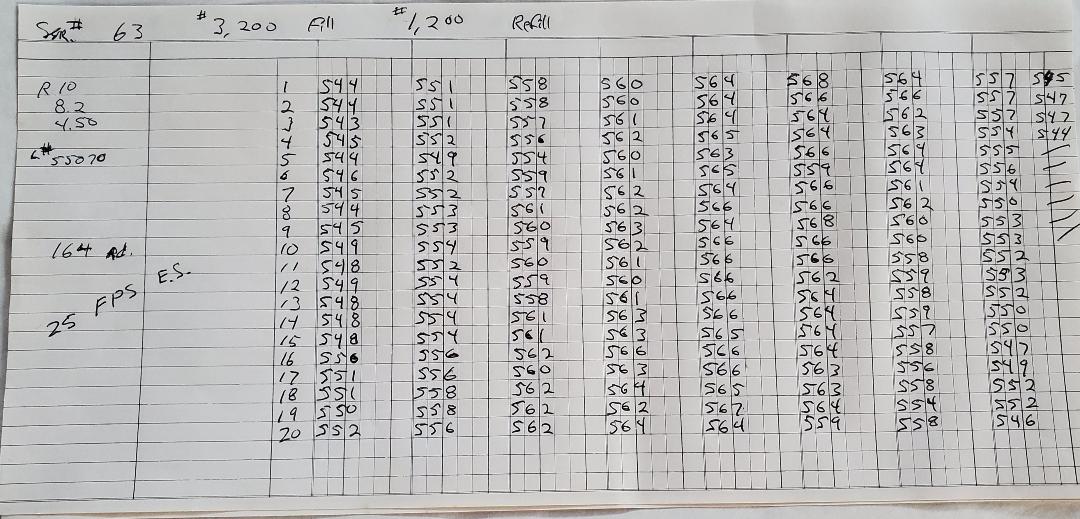 SER.# 63 #3,200 Fill #1,200 Refill
R 10 1 544 551 558 560 564 568 564 557 545
8.2 2 544 551 558 560 564 566 566 557 547
4.50 3 543 551 557 561 564 564 562 557 547
4 545 552 556 562 565 564 563 554 544
L#55070 5 544 549 554 560 563 566 564 555
6 546 552 559 561 565 559 564 556
7 545 552 557 562 564 566 561 554
8 544 553 561 562 566 566 562 550
9 545 553 560 563 564 568 560 553
164 Rd. 10 549 554 559 562 566 566 560 553
11 548 552 560 561 566 566 558 552
E.S. 12 549 554 559 560 566 562 559 553
25 FPS 13 548 554 558 561 566 564 558 552
14 548 554 561 563 566 564 559 550
15 548 554 561 563 565 564 557 550
16 556 556 562 566 566 564 558 547
17 551 556 560 563 566 563 556 549
18 551 558 562 564 565 563 558 552
19 550 558 562 562 567 564 554 552
20 552 556 562 564 564 559 558 546